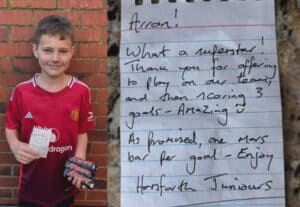 Arron!
What a superstar!
Thank you for offering
to play on our team,
and then scoring 3
goals - Amazing
As promised, one mars
bar per goal - Enjoy
Horsforth Juniours
dragon